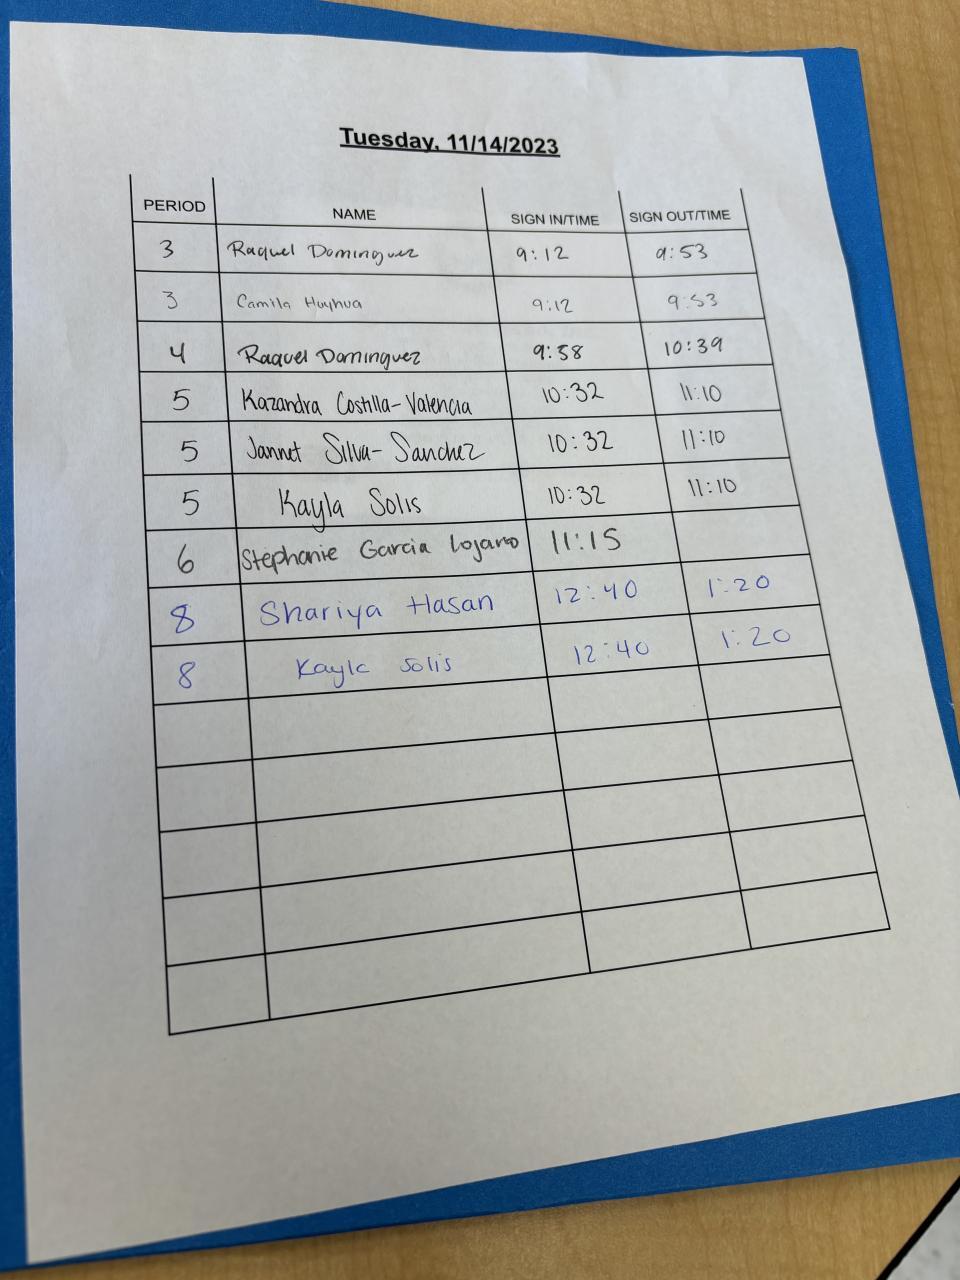 Tuesday, 11/14/2023
PERIOD NAME SIGN IN/TIME SIGN OUT/TIME
3 Raquel Dominguez 9:12 9:53
3 Camila Huyhua 9:12 9:53
4 Raquel Dominguez 9:58 10:39
5 Kazandra Costilla-Valencia 10:32 11:10
5 Jannet Silva-Sanchez 10:32 11:10
5 Kayla Solis 10:32 11:10
6 Stephanie Garcia Lojano 11:15
8 Shariya Hasan 12:40 1:20
8 Kayla Solis 12:40 1:20